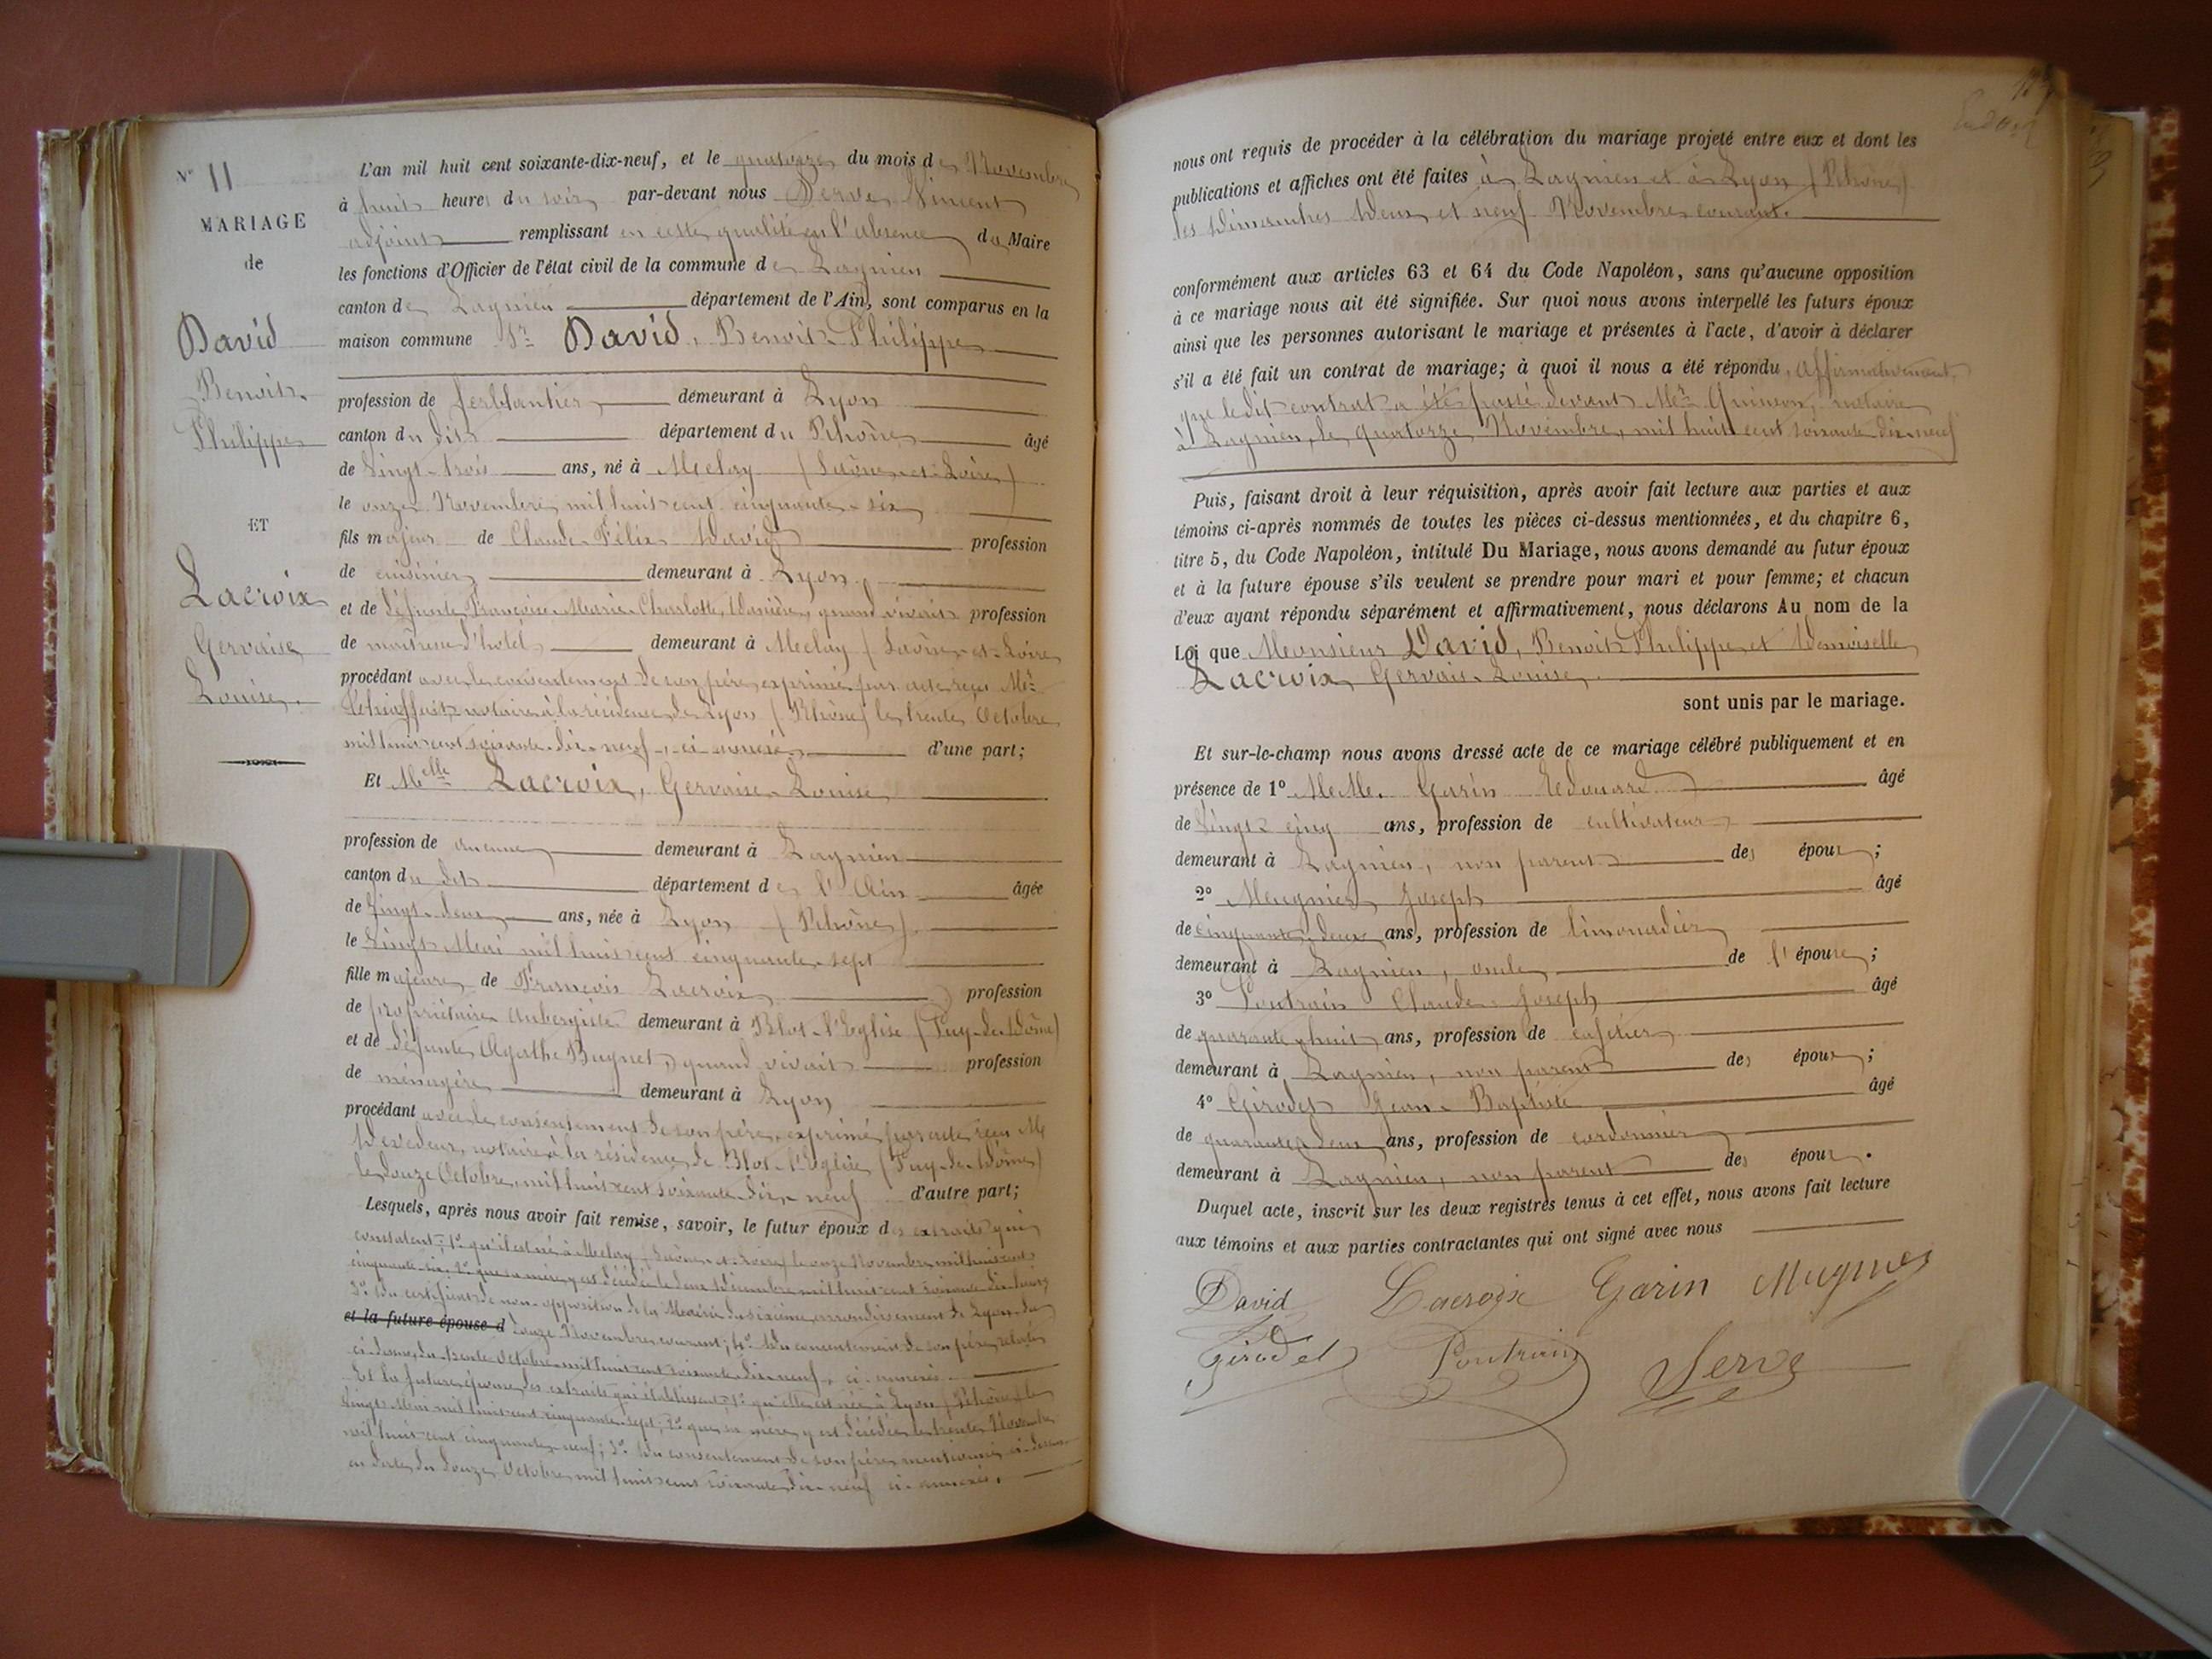 N° 11
MARIAGE
de
David
Benoit
Philippe
ET
Lacroix
Gervaise
Louise.
L'an mil huit cent soixante-dix-neuf, et le quatorze du mois de Novembre
à huit heures du soir par-devant nous Serve Vincent
adjoint remplissant en cette qualité en l'absence du Maire
les fonctions d'Officier de l'état civil de la commune de Lagnieu
canton de Lagnieu département de l'Ain, sont comparus en la
maison commune Sr David, Benoit Philippe
profession de ferblantier demeurant à Lyon
canton du dit département du Rhône âgé
de Vingt-trois ans, né à Melay (Saône-et-Loire)
le onze Novembre mil huit cent cinquante-six
fils majeur de Claude Félix David profession
de cuisinier demeurant à Lyon
et de défunte Françoise Marie Charlotte quand vivait profession
de maîtresse d'hôtel demeurant à Melay (Saône-et-Loire
procédant avec le consentement de son père, exprimé par acte reçu Me
notaire à la résidence de Lyon (Rhône) le trente Octobre
mil huit cent soixante-dix-neuf, ci-annexé. d'une part;
Et Melle Lacroix, Gervaise Louise
profession de aucune demeurant à Lagnieu
canton du dit département de l'Ain âgée
de Vingt-deux ans, née à Lyon (Rhône)
le Vingt Mai mil huit cent cinquante-sept
fille majeure de François Lacroix profession
de propriétaire Aubergiste demeurant à Blot-l'Eglise (Puy-de-Dôme)
et de défunte Agathe Buynet, quand vivait profession
de ménagère demeurant à Lyon
procédant avec le consentement de son père, exprimé par acte reçu Me
notaire à la résidence de Blot-l'Eglise (Puy-de-Dôme)
le douze Octobre, mil huit cent soixante-dix-neuf d'autre part;
Lesquels, après nous avoir fait remise, savoir, le futur époux des extraits qui
constatent; 1° qu'il est né à Melay (Saône-et-Loire) le onze Novembre mil huit cent
cinquante-six, 2° que sa mère y est décédée le deux Décembre mil huit cent soixante-dix-huit,
3° Du certificat de non-opposition de la Mairie du sixième arrondissement de Lyon du
et la future épouse d douze Novembre courant; 4° Du consentement de son père, relaté
ci-dessus, du trente Octobre mil huit cent soixante-dix-neuf, ci-annexé.
Et la future épouse des extraits qui établissent 1° qu'elle est née à Lyon (Rhône) le
Vingt Mai mil huit cent cinquante-sept; 2° que sa mère y est décédée le trente Novembre
mil huit cent cinquante-neuf; 3° Du consentement de son père mentionné ci-dessus
en date du douze Octobre mil huit cent soixante-dix-neuf ci-annexé.
nous ont requis de procéder à la célébration du mariage projeté entre eux et dont les
publications et affiches ont été faites à Lagnieu et à Lyon (Rhône)
les Dimanches Deux et neuf Novembre courant.
conformément aux articles 63 et 64 du Code Napoléon, sans qu'aucune opposition
à ce mariage nous ait été signifiée. Sur quoi nous avons interpellé les futurs époux
ainsi que les personnes autorisant le mariage et présentes à l'acte, d'avoir à déclarer
s'il a été fait un contrat de mariage; à quoi il nous a été répondu, affirmativement,
que le dit contrat a été passé devant Me Quinson, notaire
à Lagnieu, le quatorze Novembre, mil huit cent soixante-dix-neuf
Puis, faisant droit à leur réquisition, après avoir fait lecture aux parties et aux
témoins ci-après nommés de toutes les pièces ci-dessus mentionnées, et du chapitre 6,
titre 5, du Code Napoléon, intitulé Du Mariage, nous avons demandé au futur époux
et à la future épouse s'ils veulent se prendre pour mari et pour femme; et chacun
d'eux ayant répondu séparément et affirmativement, nous déclarons Au nom de la
Loi que Monsieur David, Benoit Philippe et Demoiselle
Lacroix, Gervaise Louise,
sont unis par le mariage.
Et sur-le-champ nous avons dressé acte de ce mariage célébré publiquement et en
présence de 1° MM. Garin Edouard âgé
de Vingt cinq ans, profession de cultivateur
demeurant à Lagnieu, non parent des époux;
2° Meugnier Joseph âgé
de cinquante-deux ans, profession de limonadier
demeurant à Lagnieu, oncle de l'épouse;
3° Poutrain Claude Joseph âgé
de quarante-huit ans, profession de cafetier
demeurant à Lagnieu, non parent des époux;
4° Girodet Jean-Baptiste âgé
de quarante-deux ans, profession de cordonnier
demeurant à Lagnieu, non parent des époux.
Duquel acte, inscrit sur les deux registres tenus à cet effet, nous avons fait lecture
aux témoins et aux parties contractantes qui ont signé avec nous
David Lacroix Garin Mugnier
Girodet Poutrain Serve